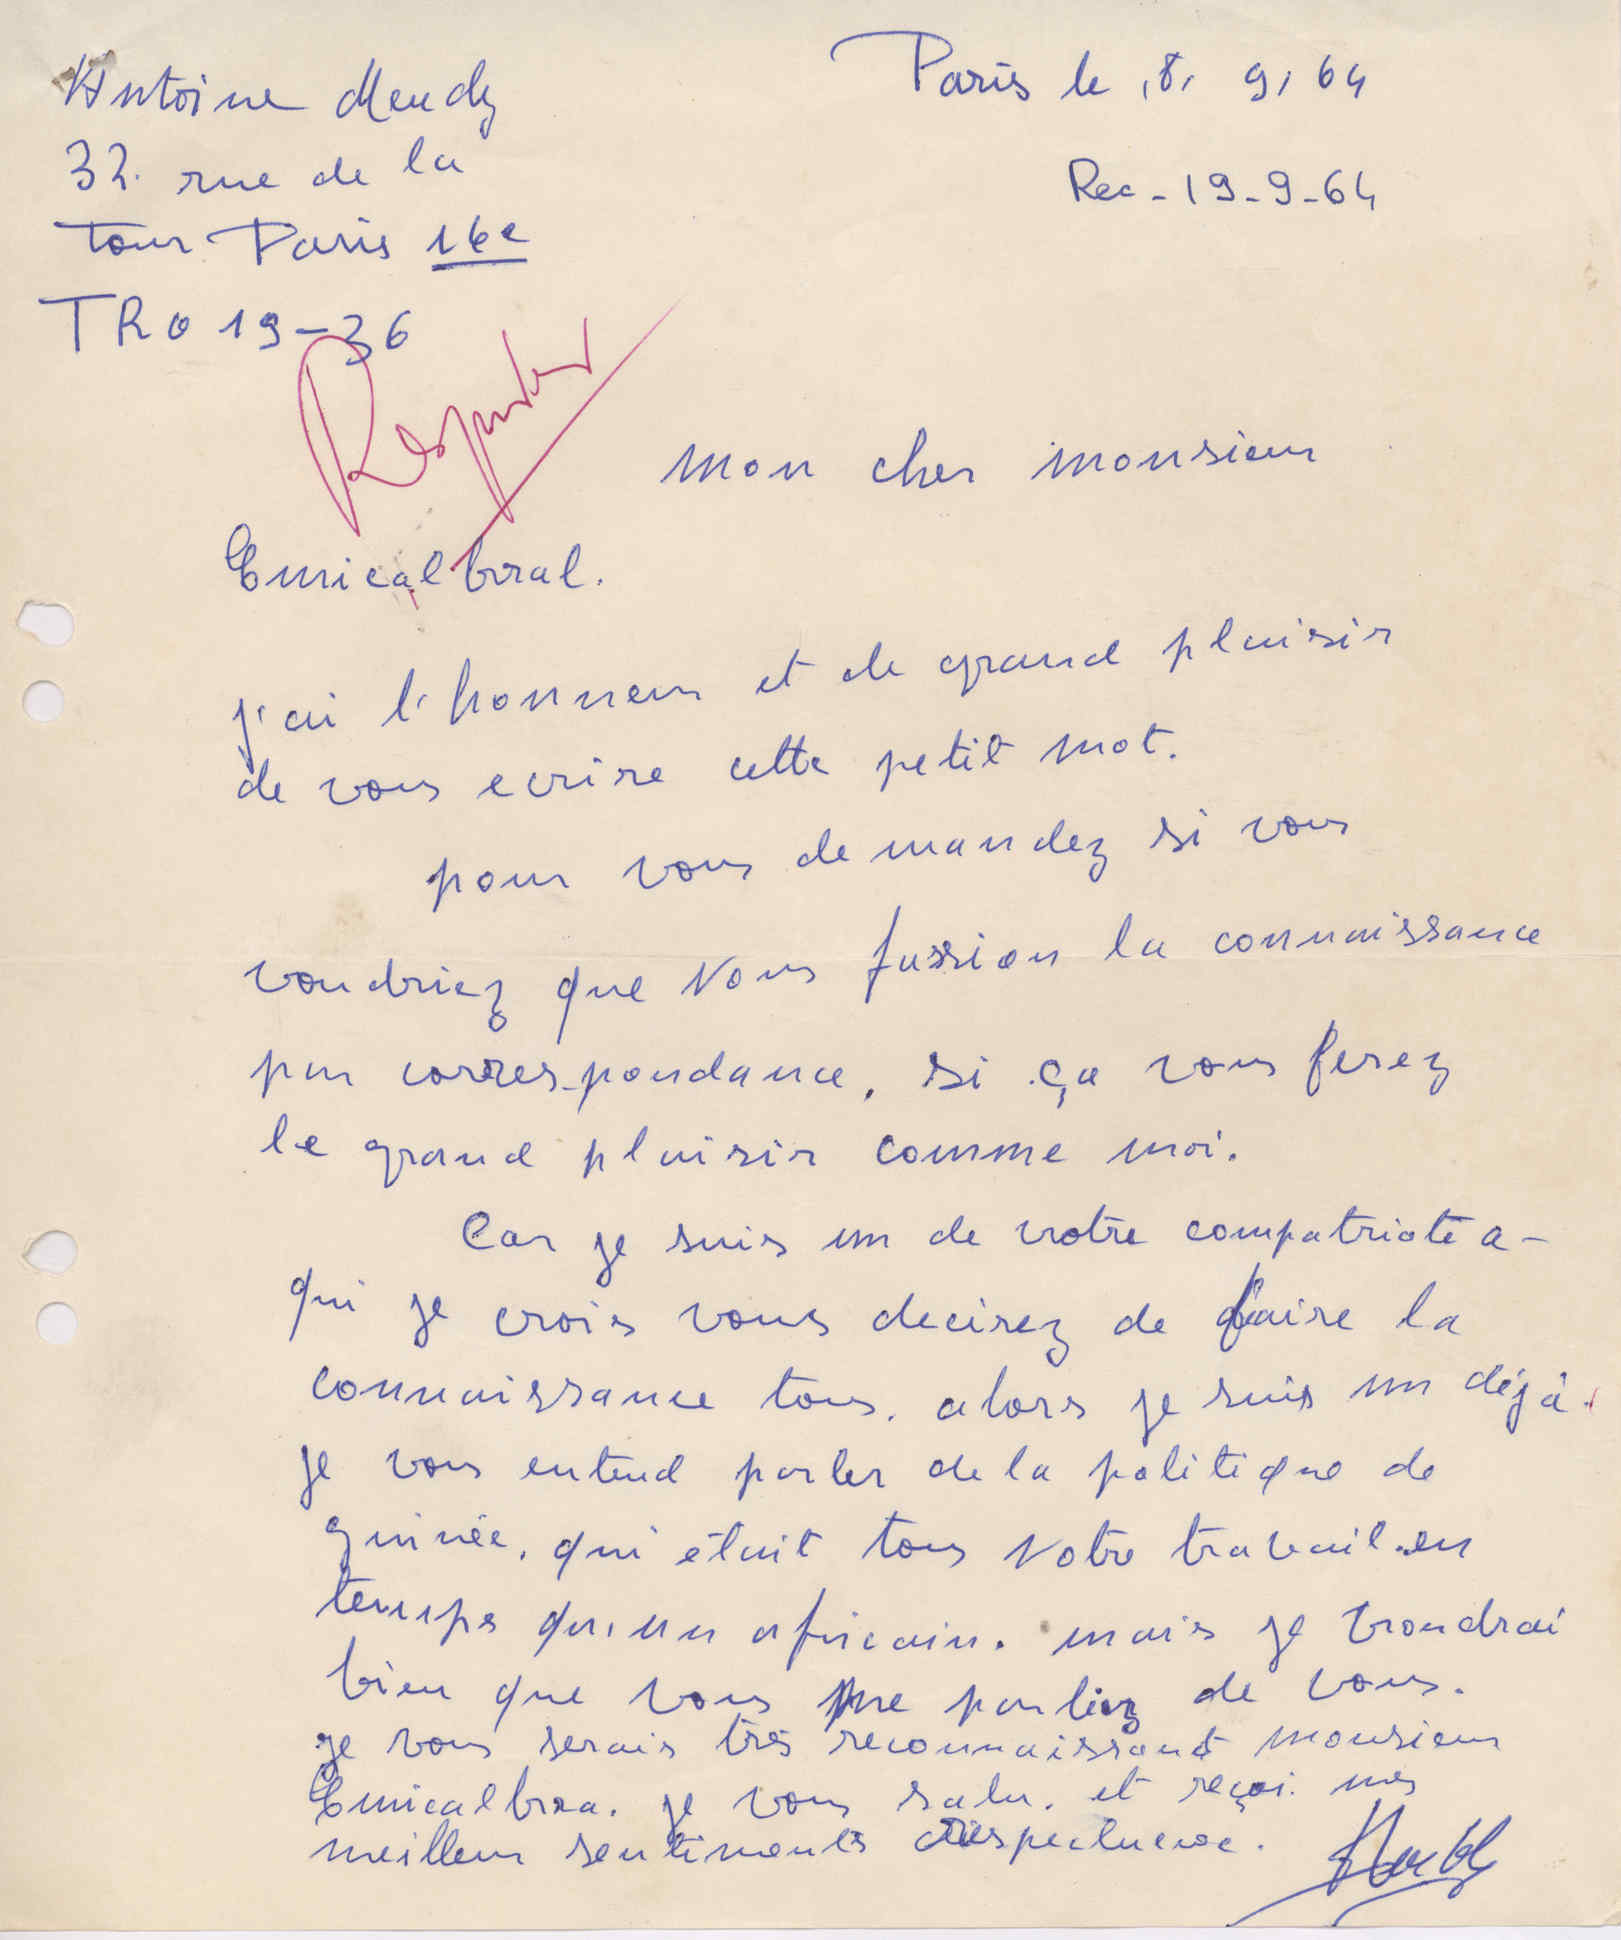 Antoine Mendy
32 rue de la
tour Paris 16e
TRO 19-36
Paris le 8. 9. 64
Rec - 19-9-64
mon cher monsieur
Emicalbral.
j'ai l'honneur et de grand plaisir
de vous ecrire cette petit mot.
pour vous demandez si vous
voudriez que nous fassion la connaissance
par correspondance, si ça vous ferez
le grand plaisir comme moi.
Car je suis un de votre compatriote a-
qui je crois vous decirez de faire la
connaissance tous. alors je suis un déjà.
je vous entend parler de la politique de
guinée. qui était tous notre travail en
temps qu'un africain. mais je voudrai
bien que vous me parliez de vous.
je vous serais très reconnaissant monsieur
Emicalbra. je vous salu. et reçoi. mes
meilleur sentiments respectueuse.